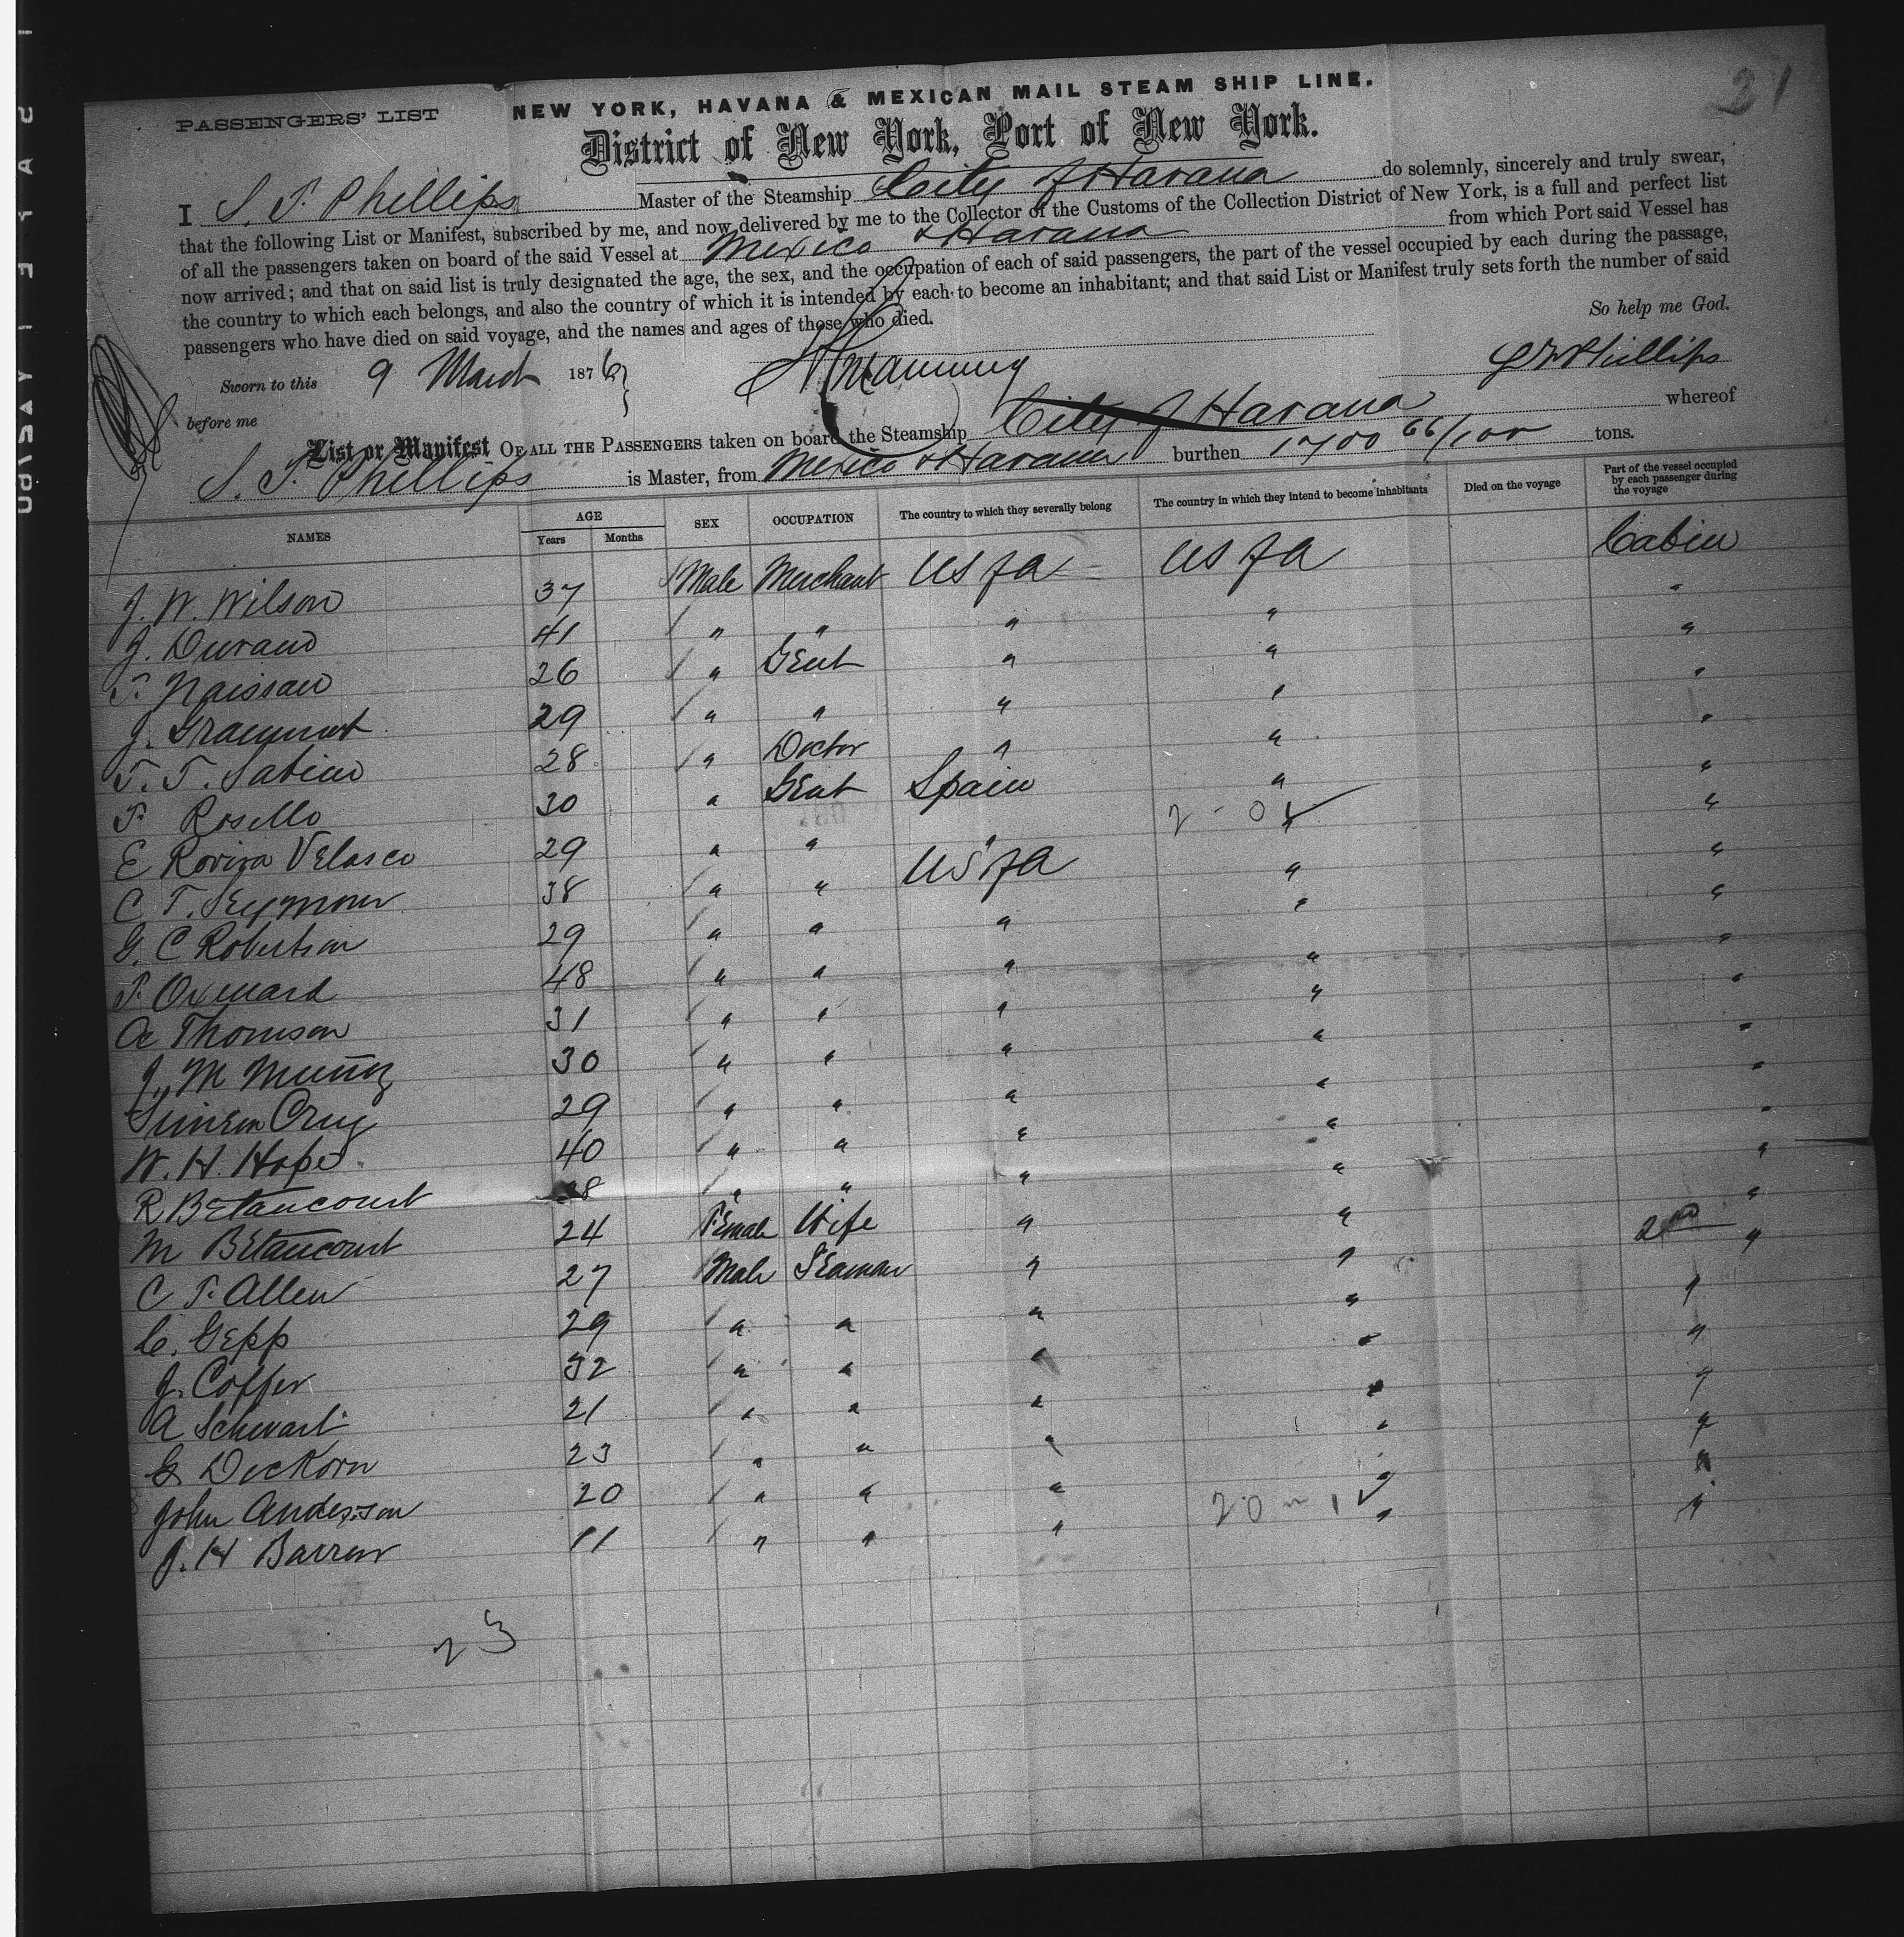 21
PASSENGERS' LIST
NEW YORK, HAVANA & MEXICAN MAIL STEAM SHIP LINE.
District of New York, Port of New York.
I S. T. Phillips Master of the Steamship City of Havana do solemnly, sincerely and truly swear,
that the following List or Manifest, subscribed by me, and now delivered by me to the Collector of the Customs of the Collection District of New York, is a full and perfect list
of all the passengers taken on board of the said Vessel at Mexico & Havana from which Port said Vessel has
now arrived; and that on said list is truly designated the age, the sex, and the occupation of each of said passengers, the part of the vessel occupied by each during the passage,
the country to which each belongs, and also the country of which it is intended by each to become an inhabitant; and that said List or Manifest truly sets forth the number of said
passengers who have died on said voyage, and the names and ages of those who died.
So help me God.
Sworn to this 9 March 1876 Phillips
before me
List or Manifest OF ALL THE PASSENGERS taken on board the Steamship City of Havana whereof
S. T. Phillips is Master, from Mexico & Havana burthen 1700 66/100 tons.
NAMES AGE Years Months SEX OCCUPATION The country to which they severally belong The country in which they intend to become inhabitants Died on the voyage Part of the vessel occupied by each passenger during the voyage
J. W. Wilson 37 Male Merchant US of A US of A Cabin
J. Durand 41 " " " " "
26 " Gent " " "
J. 29 " " " " "
T. T. Sabin 28 " Doctor " " "
Rosello 30 " Gent Spain " "
E Rovira Velasco 29 " " " 2-0 " "
C T. Seymour 38 " " US of A " "
G. C Robertson 29 " " " " "
48 " " " " "
A Thomson 31 " " " " "
J. M Muñoz 30 " " " " "
Simeon Cruz 29 " " " " "
W. H. Hope 40 " " " " "
R Betancourt 38 " " " " "
M Betancourt 24 Female Wife " " "
C T. Allen 27 Male Seaman " " 2nd "
C. Gepp 29 " " " " "
J. Coffer 32 " " " " "
A Schwart 21 " " " " "
G DecKorn 23 " " " " "
John Anderson 20 " " " 20-1 " "
J. H Barrow 11 " " " " "
23